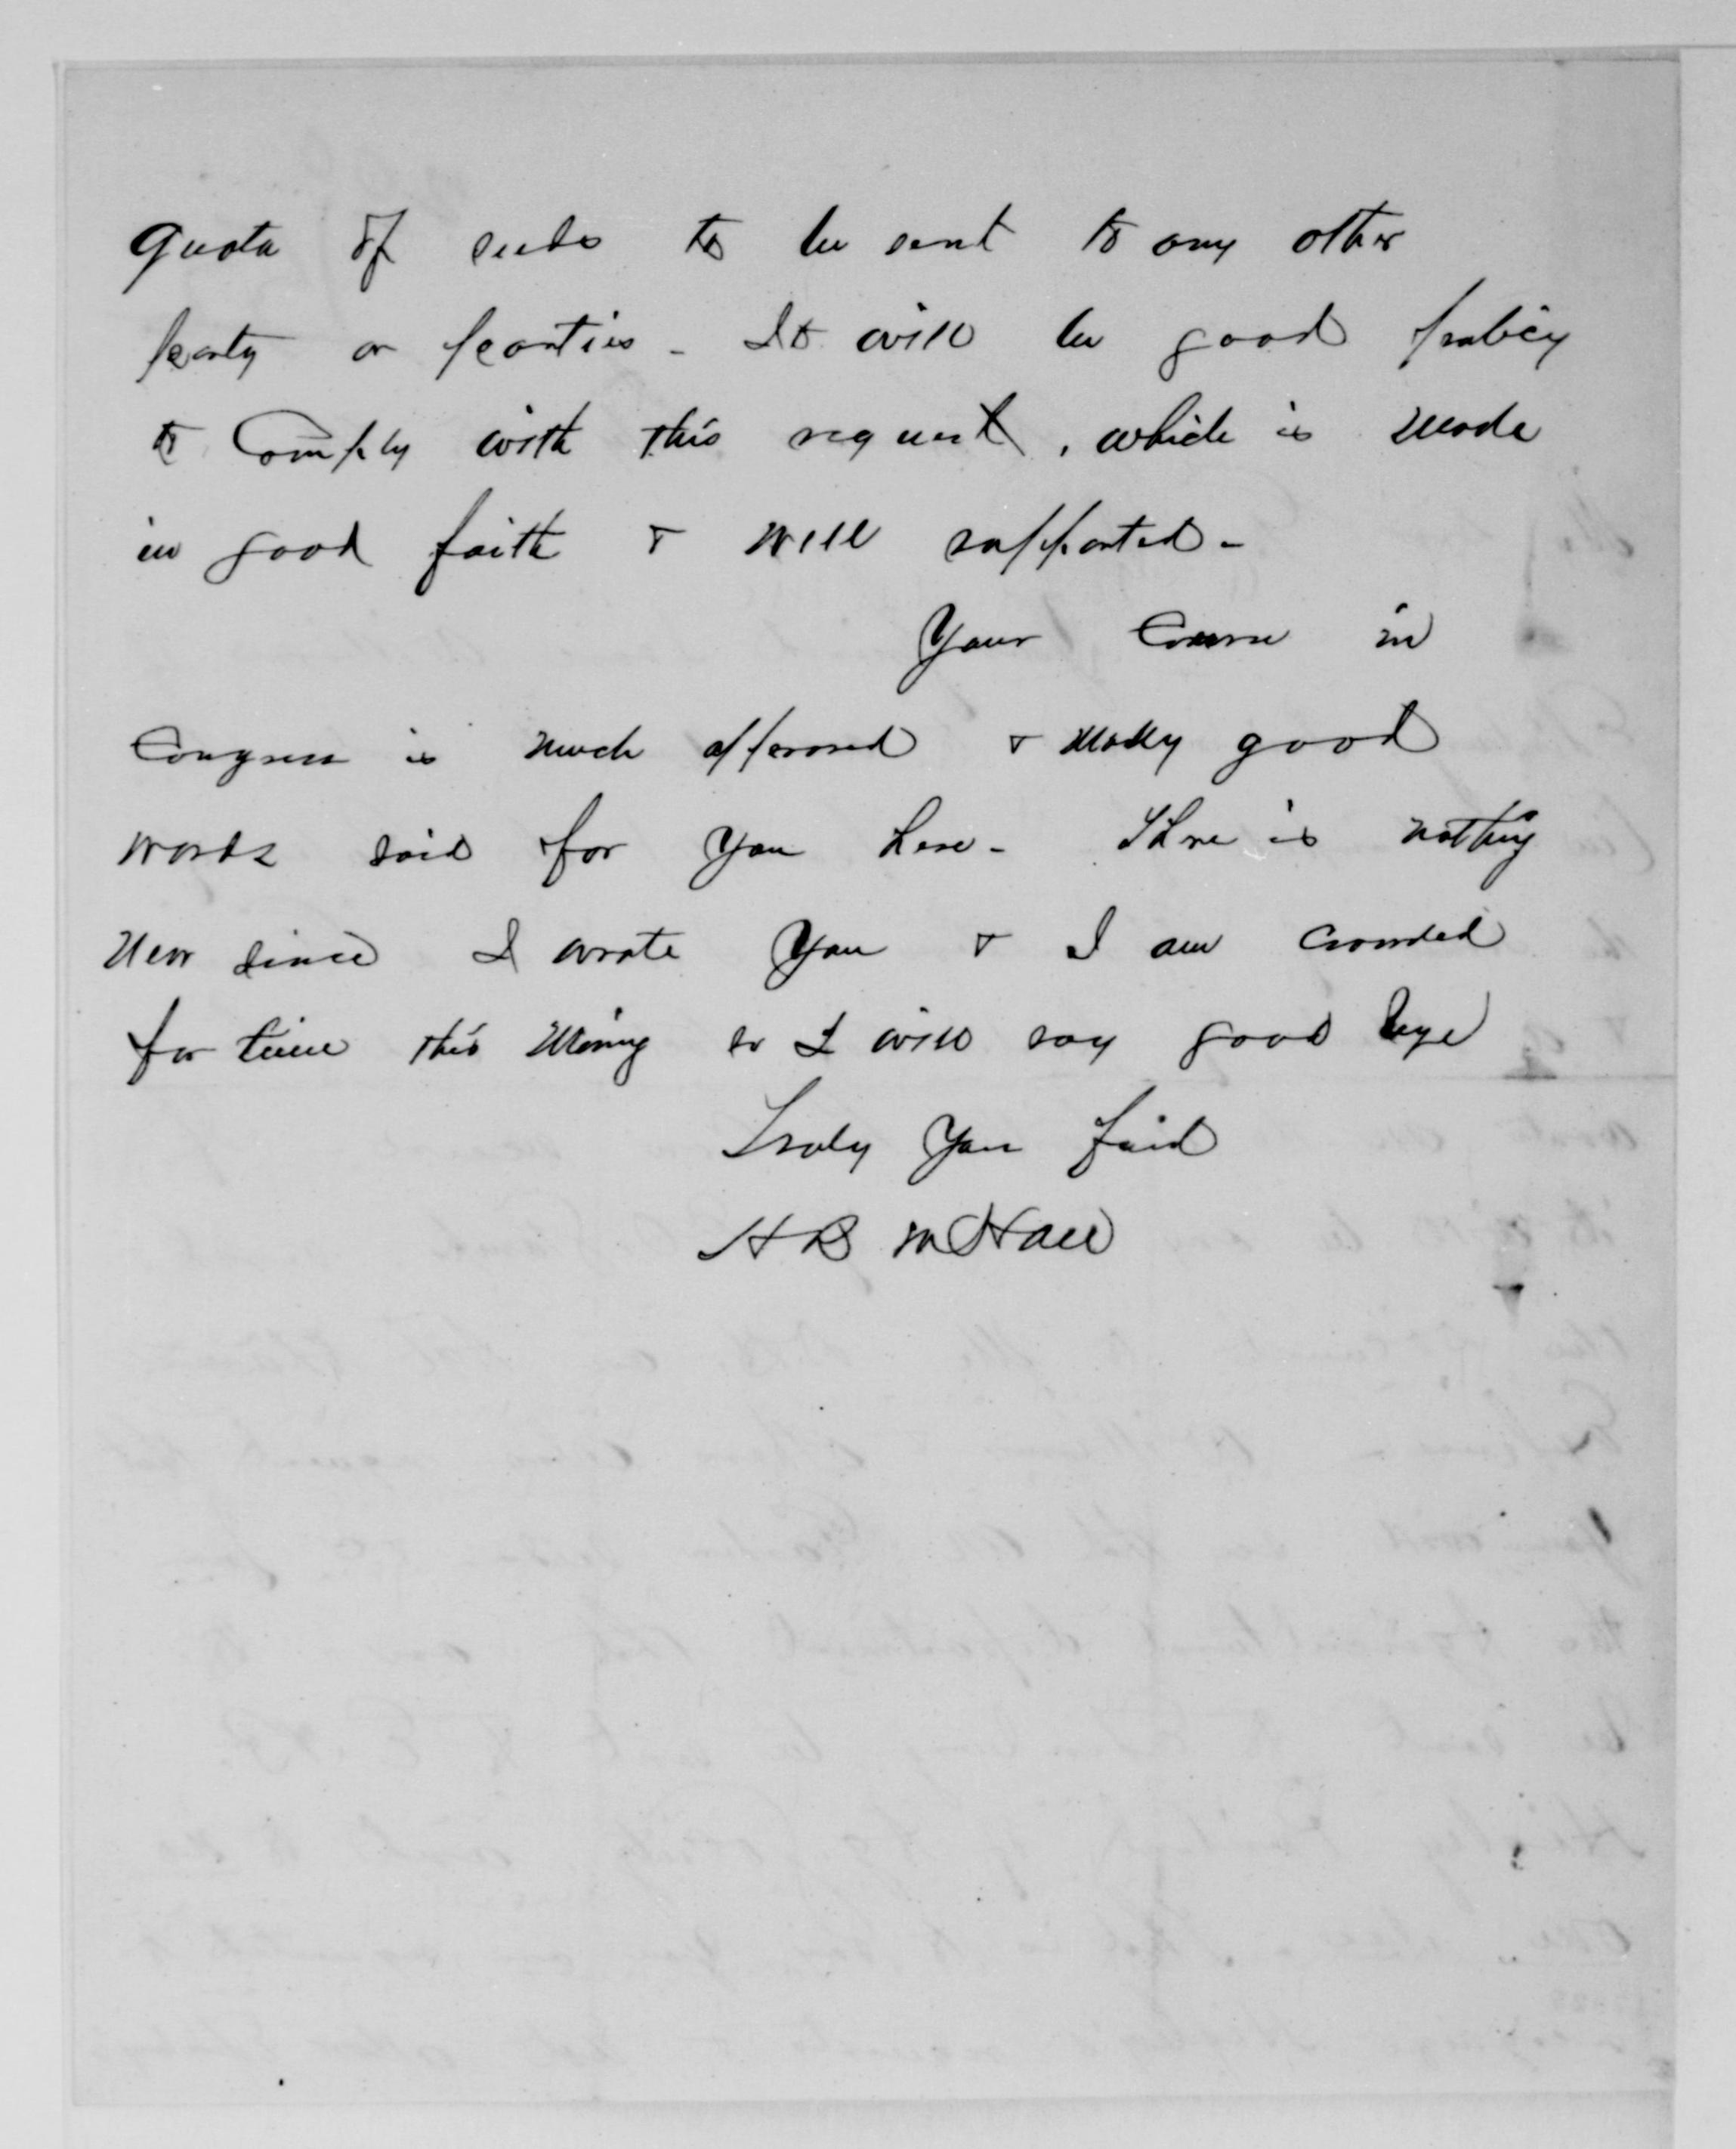 quota of seeds to be sent to any other
party or parties - It will be good policy
to Comply with this request, which is made
in good faith & well supported -
Your Course in
Congress is much approved & many good
words said for you here - There is nothing
new since I wrote you & I am crowded
for time this morning so I will say good bye
Truly your friend
H B